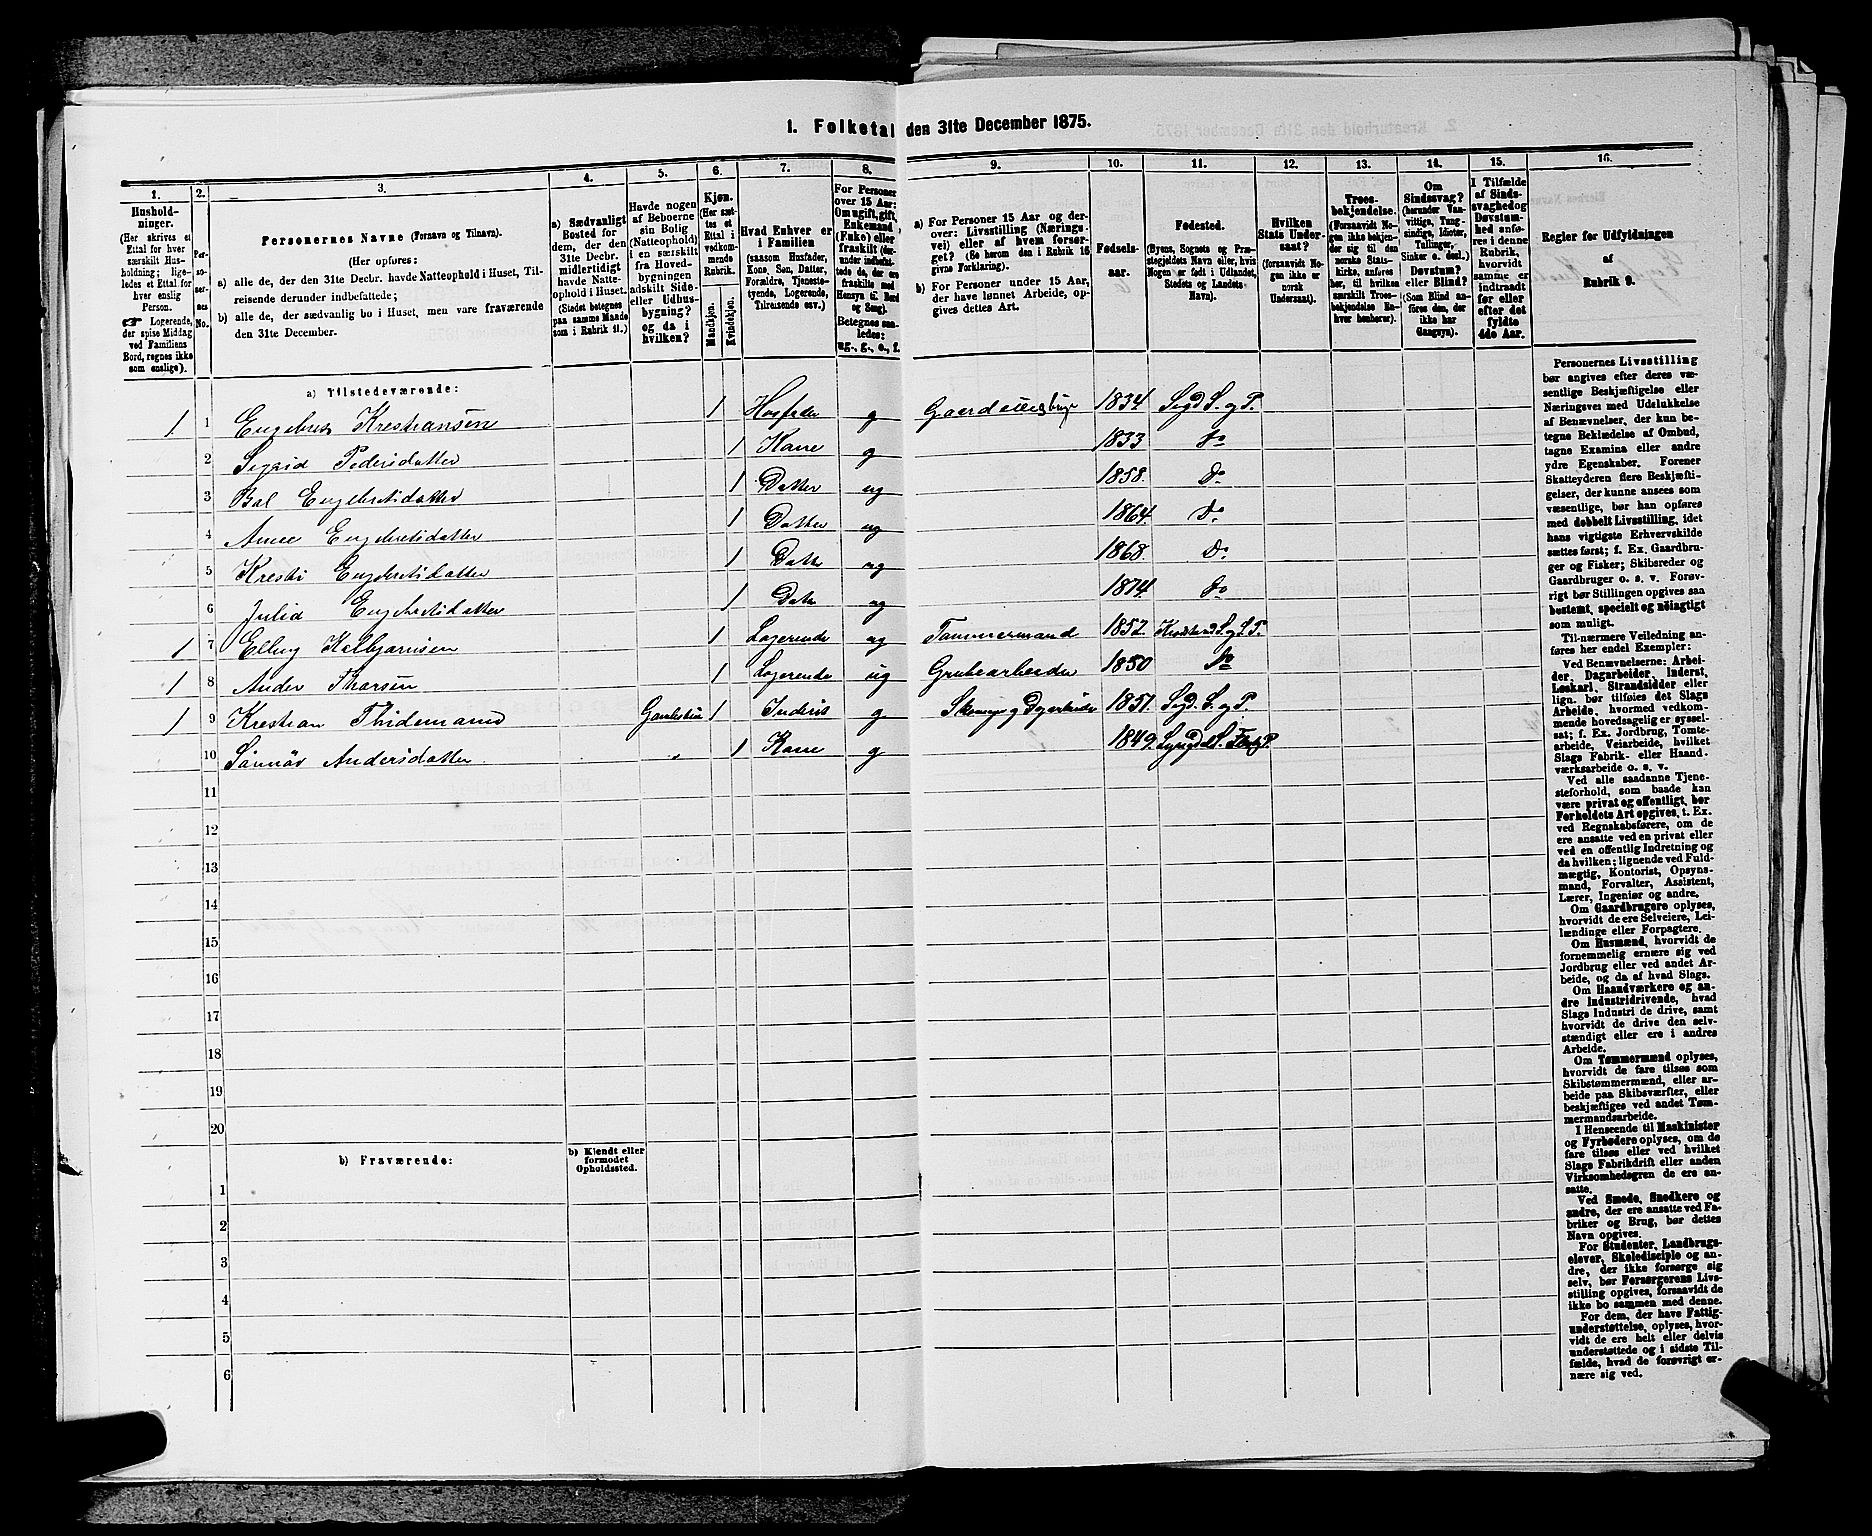 1. Folketal den 31te December 1875.
1. 2. 3. 4. 5. 6. 7. 8. 9. 10. 11. 12. 13. 14. 15. 16.
Hushold-
ninger.
(Her skrives et
Ettal for hver
særskilt Hus-
holdning; lige-
ledes et Ettal for
hver enslig
Person.
☞ Logerende,
der spise Middag
ved Familiens
Bord, regnes ikke
som enslige).
Per-
so-
ner-
nes
No.
Personernes Navne (Fornavn og Tilnavn).
(Her opføres:
a) alle de, der den 31te Decbr. havde Natteophold i Huset, Til-
reisende derunder indbefattede;
b) alle de, der sædvanlig bo i Huset, men vare fraværende
den 31te December.
a) Sædvanligt
Bosted for
dem, der den
31te Decbr.
midlertidigt
havde Natte-
ophold i Huset.
(Stedet betegnes
paa samme Maade
som i Rubrik 11.)
Havde nogen
af Beboerne
sin Bolig
(Natteophold)
i en særskilt
fra Hoved-
bygningen
adskilt Side-
eller Udhus-
bygning?
og da i
hvilken?
Kjøn.
(Her sæt-
tes et
Ettal i
vedkom-
mende
Rubrik.
Mandkjøn.
Kvindekjøn.
Hvad Enhver er
i Familien
(saasom Husfader,
Kone, Søn, Datter,
Forældre, Tjeneste-
tyende, Logerende,
Tilreisende osv.)
For Personer
over 15 Aar:
Om ugift, gift,
Enkemand
(Enke) eller
fraskilt (der-
under indbefat-
tede de, der ere
fraskilte med
Hensyn til Bord
og Seng).
Betegnes saa-
ledes:
ug., g., e., f.
a) For Personer 15 Aar og der-
over: Livsstilling (Nærings-
vei) eller af hvem forsør-
get? (Se herom den i Rubrik 16
givne Forklaring).
b) For Personer under 15 Aar,
der have lønnet Arbeide, op-
gives dettes Art.
Fødsels-
aar.
Fødested.
(Byens, Sognets og Præ-
stegjeldets Navn eller, hvis
Nogen er født i Udlandet,
Stedets og Landets
Navn).
Hvilken
Stats Under-
saat?
(forsaavidt No-
gen ikke er
norsk
Undersaat).
Troes-
bekjendelse.
(Forsaavidt No-
gen ikke bekjen-
der sig til den
norske Stats-
kirke, anføres
her, til hvilken
særskilt Troes-
bekjendelse En-
hver henhører).
Om
Sindssvag?
(herunder Van-
vittige, Tung-
sindige, Idioter,
Tullinger,
Sinker o. desl.)
Døvstum?
eller Blind?
(Som Blind an-
føres den, der
ikke har
Gangsyn).
I Tilfælde
af Sinds-
svaghed og
Døvstum-
hed anfø-
res i denne
Rubrik,
hvorvidt
samme er
indtraadt
før eller
efter det
fyldte
4de Aar.
Regler for Udfyldningen
af
Rubrik 9.
a) Tilstedeværende:
1 1 Engebret Krestiansen 1 Husfader g Gaardeier 1834 Sigd. S. og P.
2 Sigrid Pedersdatter 1 Kone g 1833 Do
3 Engebretsdatter 1 Datter ug 1858. Do
4 Anne Engebretsdatter 1 Datter ug 1864. Do
5 Kresti Engebretsdatter 1 Datte ug 1868. Do
6 Julia Engebretsdatter 1 Datte ug 1874. Do
1 7 Elling 1 Logerende ug Tømmermand 1852. S. og P.
1 8 Ander Tharsen 1 Logerende ug Grubearbeider 1850 Do
1 9 Krestian Thidemand 1 Inderst g 1851. Sigd. S. og P.
10 Andersdatter " 1 Kone g 1849.
11
12
13
14
15
16
17
18
19
20
b) Fraværende:
b) Kjendt eller
formodet
Opholdssted.
1
2
3
4
5
6
Personernes Livsstilling
bør angives efter deres væ-
sentlige Beskjæftigelse eller
Næringsvei med Udelukkelse
af Benævnelser, der kun be-
tegne Beklædelse af Ombud,
tagne Examina eller andre
ydre Egenskaber. Forener
Skatteyderen flere Beskjæfti-
gelser, der kunne ansees som
væsentlige, bør han opføres
med dobbelt Livsstilling, idet
hans vigtigste Erhvervskilde
sættes først; f. Ex. Gaardbru-
ger og Fisker; Skibsreder og
Gaardbruger o. s. v. Forøv-
rigt bør Stillingen opgives saa
bestemt, specielt og nøiagtigt
som muligt.
Til nærmere Veiledning an-
føres her endel Exempler:
Ved Benævnelserne: Arbei-
der, Dagarbeider, Inderst,
Løskarl, Strandsidder eller
lign. bør tilføies det Slags
Arbeide, hvormed vedkom-
mende hovedsagelig er syssel-
sat; f. Ex. Jordbrug, Tomte-
arbeide, Veiarbeide, hvilket
Slags Fabrik- eller Haand-
værksarbeide o. s. v.
Ved alle saadanne Tjene-
steforhold, som baade kan
være privat og offentligt, bør
Forholdets Art opgives, t. Ex.
ved Regnskabsførere, om de
ere ansatte ved en privat eller
ved en offentlig Indretning og
da hvilken; lignende ved Fuld-
mægtig, Kontorist, Opsyns-
mand, Forvalter, Assistent,
Lærer, Ingeniør og andre.
Om Gaardbrugere oplyses,
hvorvidt de ere Selveiere, Lei-
lændinge eller Forpagtere.
Om Husmænd, hvorvidt de
fornemmelig ernære sig ved
Jordbrug eller ved andet Ar-
beide, og da af hvad Slags.
Om Haandværkere og an-
dre Industridrivende, hvad
Slags Industri de drive, samt
hvorvidt de drive den selv-
stændigt eller ere i andres
Arbeide.
Om Tømmermænd oplyses,
hvorvidt de fare tilsøs som
Skibstømmermænd, eller ar-
beide paa Skibsværfter, eller
beskjæftiges ved andet Tøm-
mermandsarbeide.
I Henseende til Maskinister
og Fyrbødere oplyses, om de
fare tilsøs eller ved hvilket
Slags Fabrikdrift eller anden
Virksomhedsgren de ere an-
satte.
Ved Smede, Snedkere og
andre, der ere ansatte ved Fa-
briker og Brug, bør dettes
Navn opgives.
For Studenter, Landbrugs-
elever, Skoledisciple og an-
dre, der ikke forsørge sig
selv, bør Forsørgerens Livs-
stilling opgives, forsaavidt de
ikke bo sammen med denne.
For dem, der have Fattig-
understøttelse, oplyses, hvor-
vidt de ere helt eller delvis
understøttede og i sidste Til-
fælde, hvad de forøvrigt er-
nære sig ved.